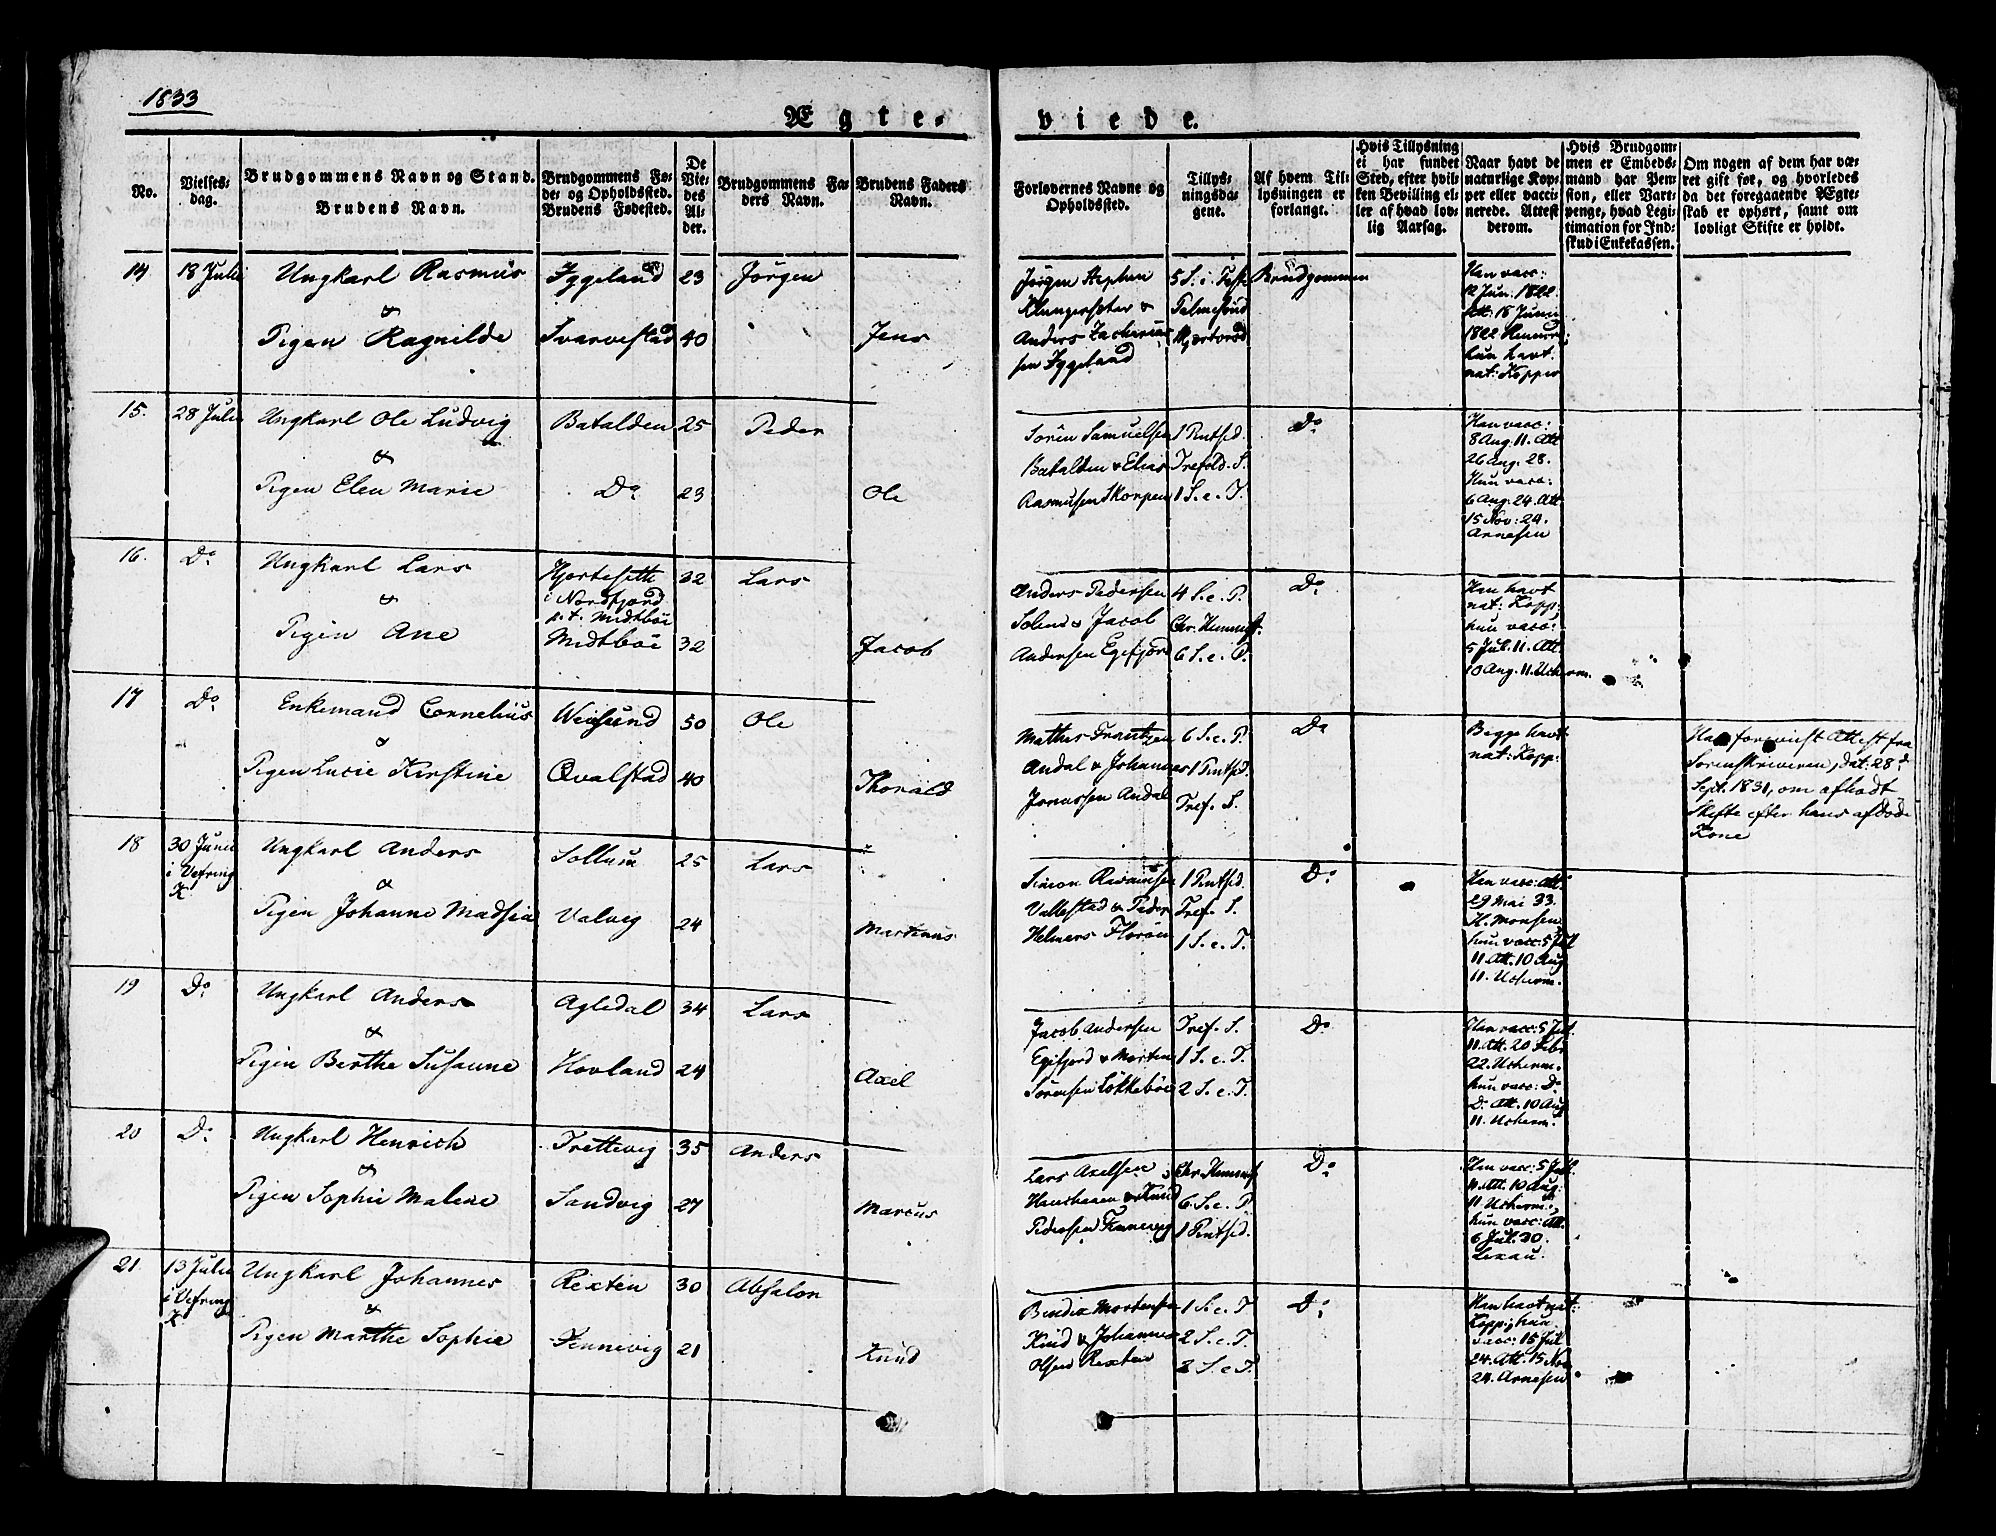 1833
Ægte-
viede.
No.
Vielses-
dag.
Brudgommens Navn og Stand.
Brudens Navn.
Brudgommens Fø-
de- og Opholdssted.
Brudens Fødested.
De
Vie-
des
Al-
der.
Brudgommens Fa-
ders Navn.
Brudens Faders
Navn.
Forlovernes Navne og
Opholdssted.
Tillys-
ningsda-
gene.
Af hvem Til-
lysningen er
forlangt.
Hvis Tillysning
ei har fundet
Sted, efter hvil-
ken Bevilling el-
ler af hvad lov-
lig Aarsag.
Naar havt de
naturlige Kop-
per eller vacci-
nerede. Attest
derom.
Hvis Brudgom-
men er Embeds-
mand har Pen-
sion, eller Vart-
penge, hvad Legi-
timation for Ind-
skud i Enkekassen.
Om nogen af dem har væ-
ret gift før, og hvorledes
da det foregaaende Ægte-
skab er ophørt, samt om
lovligt Skifte er holdt.
14 18 Julii Ungkarl Rasmus Yggeland 23 Jörgen
&
Pigen Ragnilde Svarvestad 40 Jens
Jörgen Stephen
Klungersæter &
Anders Zacharias
sen Yggeland
5 S. i Faste
Palmesönd
Brudgommen
Han vacc:
12 Jun: 1822.
Att: 18 Junii
1822
hun havt
nat: Kopper
15. 28 Julii Ungkarl Ole Ludvig Batalden 25 Peder
&
Pigen Elen Marie Do 23 Ole
Sören Samuelsen
Batalden & Elias
Rasmussen Skorpen
1 Pintsd.
Trefold. S.
1 S. e. T.
Do
Han vacc:
8 Aug. 11. Att
26 Aug. 28.
Hun vacc:
6 Aug. 24. Att
15 Nov: 24.
Arnesen
16. Do Ungkarl Lars Hjortesætt 32 Lars
i Nordfjord
p. t. Midtböe
&
Pigen Ane Midtböe 32 Jacob
Anders Pedersen
Solem & Jacob
Andersen Egefjord
4 S. e. P.
Chr. Himmelf.
6 S. e. P.
Do
Han havt
nat: Kopp:
hun vacc:
5 Jul. 11. Att.
10 Aug. 11. Ucherm.
17 Do Enkemand Cornelius Weisund 50 Ole
&
Pigen Lucie Kirstine Qvalstad 40 Thorald
Mathis Frantzen
Andal & Johannes
Jonassen Andal
6 S. e. P.
1 Pintsd.
Tref. S.
Do
Begge havt
nat: Kopp:
Han foreviist Attest fra
Sorenskriveren, dat: 28d
Sept. 1831, om afholdt
Skifte efter hans afdöde
Kone
18 30 Junii
i Vefring
K.
Ungkarl Anders Sollum 25 Lars
&
Pigen Johanne Madsia Valvig 24 Martinus
Simon Rasmussen
Vallestad & Peder
Helmers Floröen
1 Pintsd.
Tref. S.
1 S. e. T.
Do
Han vacc: Att
29 Mai 33.
H. Monsen
hun vacc: 5 Jul
11. Att. 10 Aug
11. Ucherm.
19 Do Ungkarl Anders Agledal 34 Lars
&
Pigen Berthe Susanne Hovland 24 Axel
Jacob Andersen
Egefjord & Morten
Sörensen Lökkeböe
Tref. S.
1 S. e. T.
2 S. e. T.
Do
Han vacc: 5 Jul
11. Att. 20 Febr
22. Ucherm.
hun vacc: Do
D. Att. 10 Aug
11. Ucherm.
20 Do Ungkarl Henrich Trettevig 35 Anders
&
Pigen Sophie Malene Sandvig 27 Marcus
Lars Axelsen
Hanehaaen & Knud
Pedersen Finnevig
Chr. Himmelf
6. S. e. P
1 Pintsd.
Do
Han vacc: 5 Jul.
11. Att. 10 Aug:
11. Ucherm.,
hun vacc: Att.
6 Jul. 30.
Lexau.
21 13 Julii
i Vefring
K.
Ungkarl Johannes Rexten 30 Absalon
&
Pigen Marthe Sophie Finnevig 21 Knud
Bendix Mortensen
Kind & Johannes
Olsen Rexten
1 S. e. T
2 S. e. T.
3 S. e. T.
Do
Han havt nat:
Kopp; hun
vacc: 15 Jul
24. Att. 15 Nov
24. Arnesen